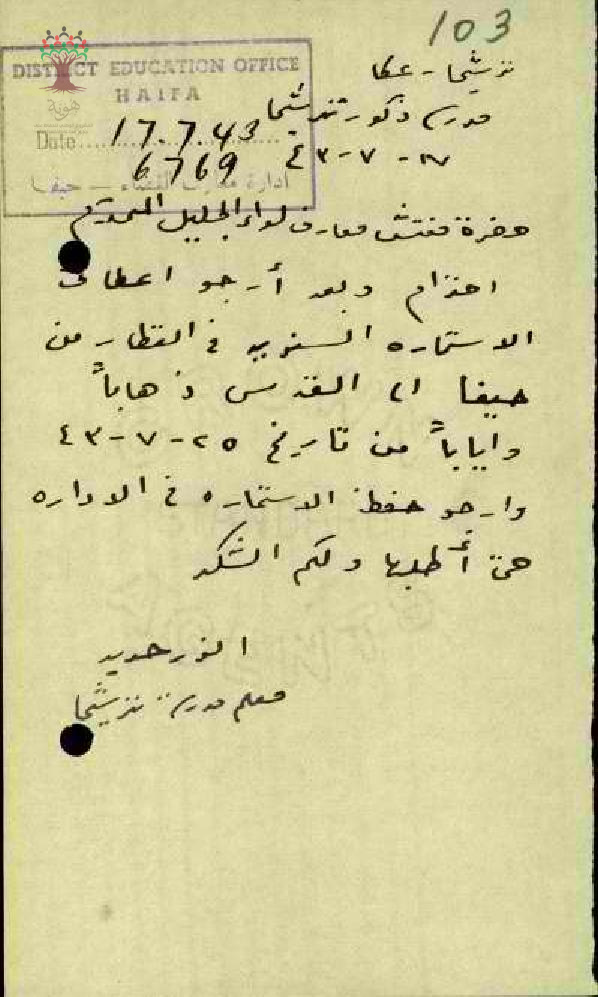 103
DISTRICT EDUCATION OFFICE
HAIFA
هوية
Date 17.7.43
6769
ادارة معارف القضاء - حيفا
ترشيحا - عكا
مدرسة ذكور ترشيحا
٤٣-٧-١٧
حضرة مفتش معارف لواء الجليل المحترم
احترام وبعد أرجو اعطائي
الاستماره السنويه في القطار من
حيفا الى القدس ذهاباً
واياباً من تاريخ ٢٥-٧-٤٣
وارجو حفظ الاستماره في الاداره
حتى أطلبها ولكم الشكر
حديد
معلم مدرسة ترشيحا